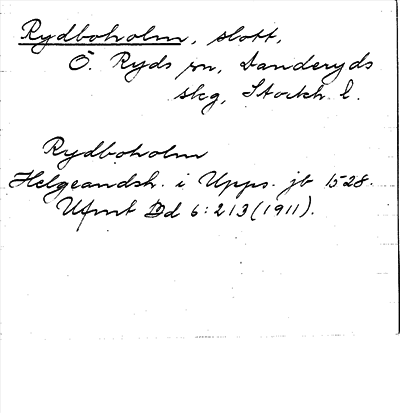 Rydboholm, slott,
Ö. Ryds sn, Danderyds
skg, Stockh. l.
Rydboholm
Helgeandsh. i Upps. jb 1528.
Ufmt Dd 6:213 (1911).